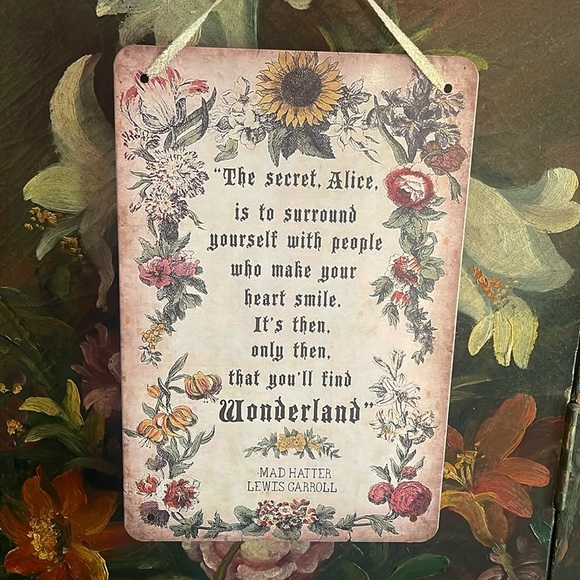 “The secret, Alice,
is to surround
yourself with people
who make your
heart smile.
It's then,
only then,
that you'll find
"Wonderland”
MAD HATTER
LEWIS CARROLL